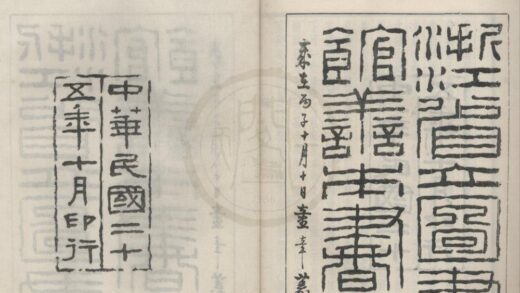 浙江省立圖書
館善本書
歲在丙子十月十日
中華民國二十
五年十月印行